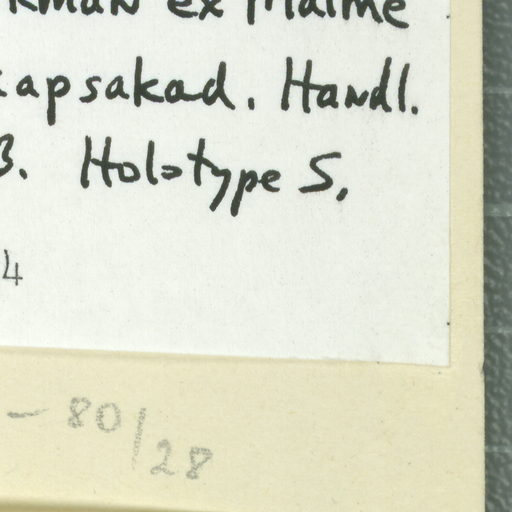 ex Malme
apsakad. Handl.
3. Holotype S.
4
- 80/28